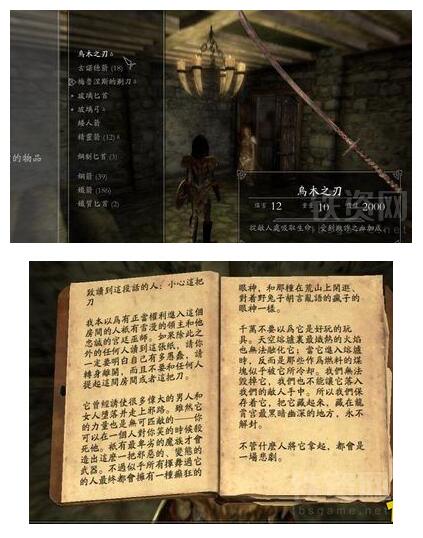 烏木之刃
古諾德箭 (18)
梅魯涅斯的剃刀
玻璃匕首
玻璃弓
矮人箭
精靈箭 (12)
鋼制匕首 (3)
鋼箭 (39)
鐵箭 (186)
鐵質匕首 (3)
的物品
烏木之刃
傷害 12 重量 10 價值 2000
從敵人處吸取生命，受到欺詐之血加成。
致讀到這段話的人：小心這把
刀
我本以爲有正當權利進入這個
房間的人衹有雪漫的領主和他
忠誠的宮廷巫師。如果除此之
外的任何人讀到這張紙，請你
一定要明白自己有多愚蠢，請
轉身離開，而且不要和任何人
提起這間房間或者這把刀。
它曾經誘使很多偉大的男人和
女人墮落并走上邪路。雖然它
的力量也是無可匹敵的——你
可以在一個人對你笑的時候殺
死他。衹有最卑劣的魔族才會
造出這麽一把邪惡的、變態的
武器。不過似乎所有揮舞過它
的人最終都會擁有一種癲狂的
眼神，和那種在荒山上閑逛、
對着野兔子胡言亂語的瘋子的
眼神一樣。
千萬不要以爲它是好玩的玩
具。天空熔爐裏最熾熱的火焰
也無法融化它；當它進入熔爐
時，反而是那些作爲燃料的煤
塊似乎被它所冷却。我們無法
毀掉它，我們也不能讓它落入
我們的敵人手中。所以我們保
存着它，把它藏起來，藏在龍
霄宮最黑暗幽深的地方，永不
解封。
不管什麽人將它拿起，都會是
一場悲劇。
bbsgame.net